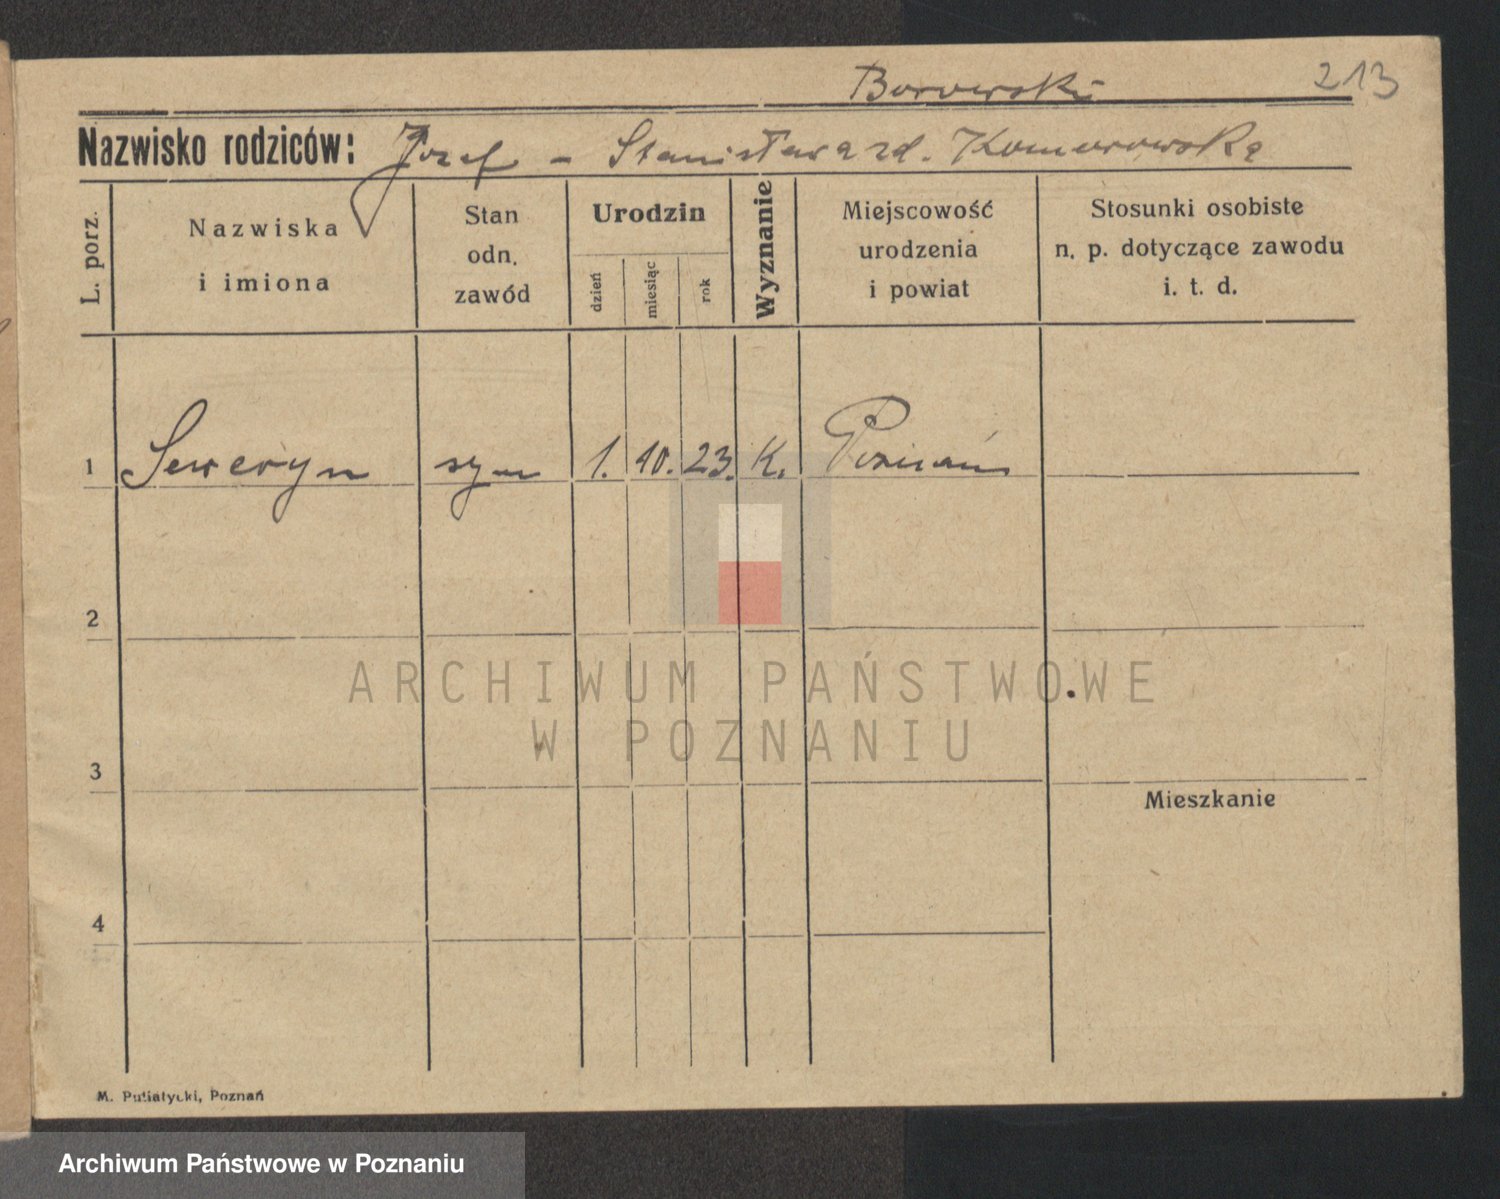 Borowski 213
Nazwisko rodziców: Józef – Stanisława zd. Komorowska
L. porz.
Nazwiska
i imiona
Stan
odn.
zawód
Urodzin
dzień
miesiąc
rok
Wyznanie
Miejscowość
urodzenia
i powiat
Stosunki osobiste
n. p. dotyczące zawodu
i. t. d.
1 Seweryn syn 1. 10. 23. K. Poznań
2
ARCHIWUM PAŃSTWOWE
W POZNANIU
3
Mieszkanie
4
M. Putiatycki, Poznań
Archiwum Państwowe w Poznaniu